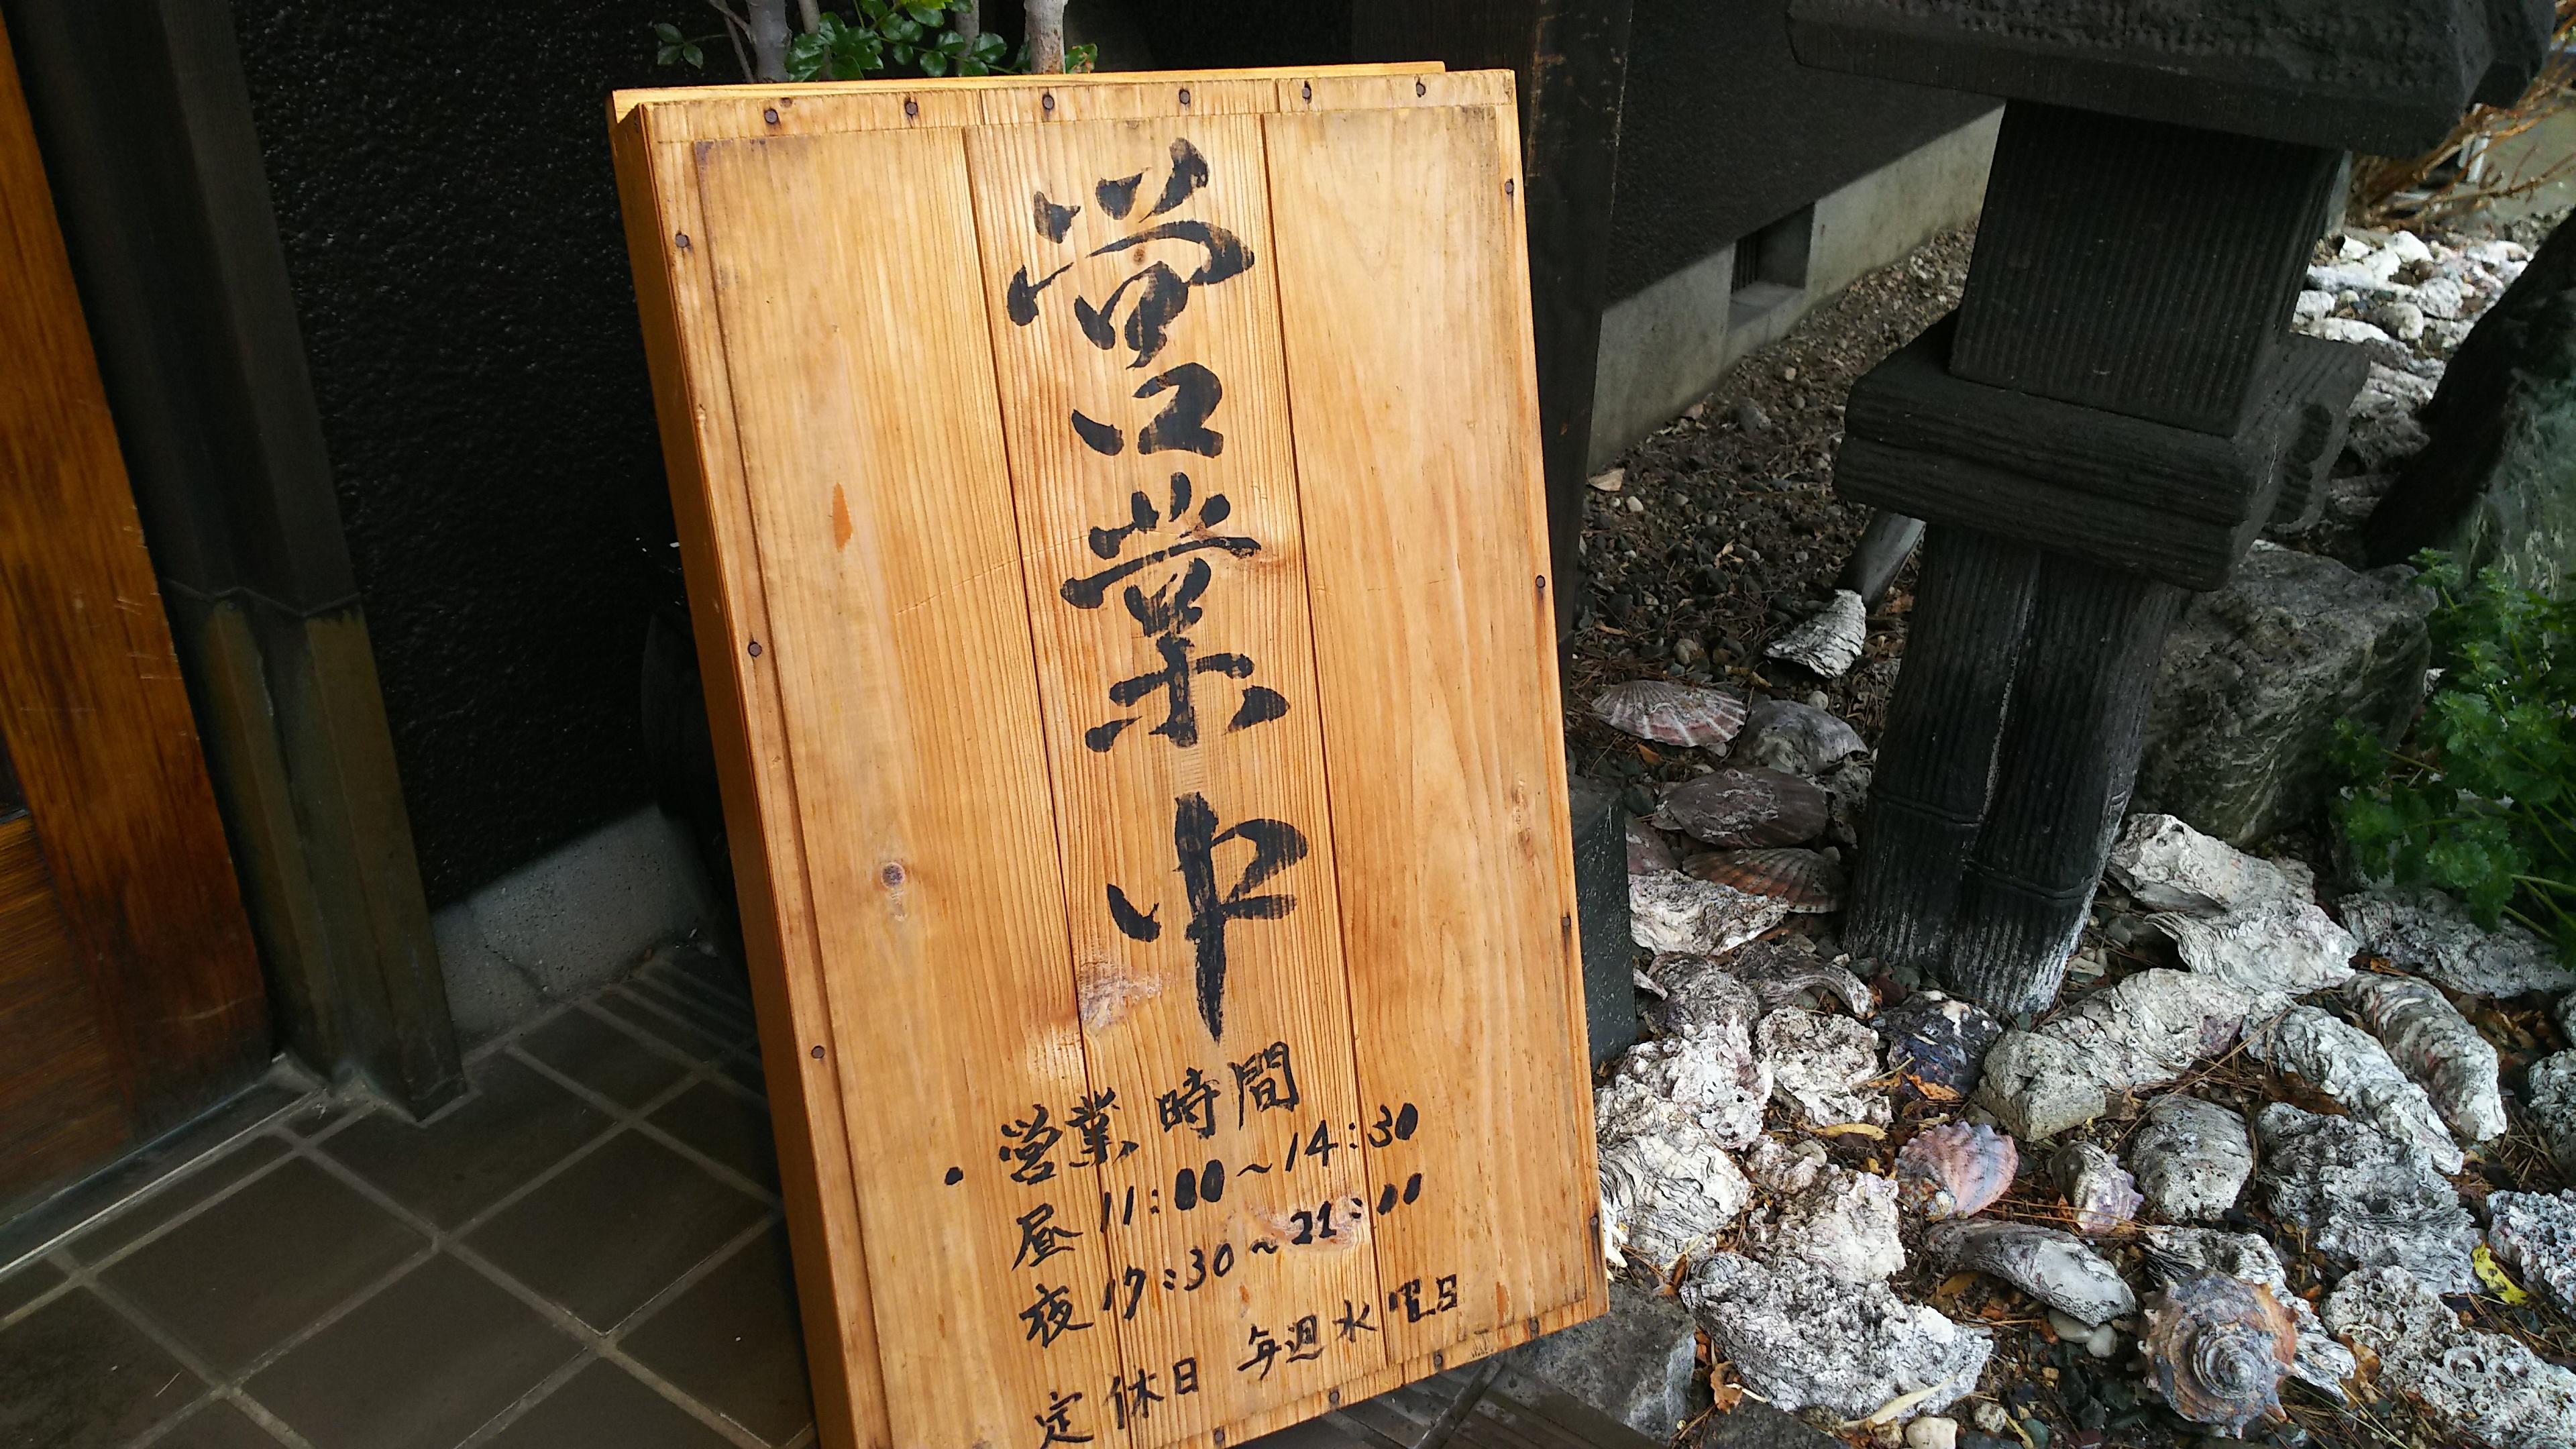 営業中
・営業時間
昼 11:00～14:30
夜 17:30～21:00
定休日 毎週水曜日